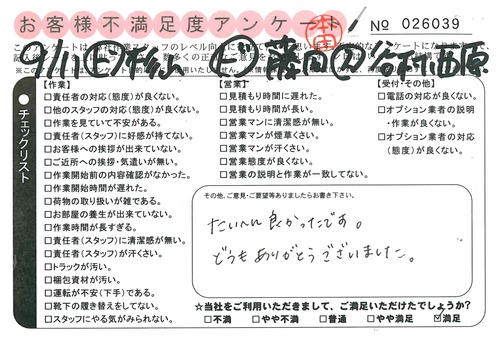 お客様不満足度アンケート
本店
No 026039
チェックリスト
【作業】
□責任者の対応(態度)が良くない。
□他のスタッフの対応(態度)が良くない。
□作業を見ていて不安がある。
□責任者(スタッフ)に好感が持てない。
□お客様への挨拶が出来ていない。
□ご近所への挨拶・気遣いが無い。
□作業開始前の内容確認がなかった。
□作業開始時間が遅れた。
□荷物の取り扱いが雑である。
□お部屋の養生が出来ていない。
□作業時間が長すぎる。
□責任者(スタッフ)に清潔感が無い。
□責任者(スタッフ)が汗くさい。
□トラックが汚い。
□梱包資材が汚い。
□運転が不安(下手)である。
□靴下の履き替えをしてない。
□スタッフにやる気がみられない。
【営業】
□見積もり時間に遅れた。
□見積もり時間が長い。
□営業マンに清潔感が無い。
□営業マンが煙草くさい。
□営業マンが汗くさい。
□営業態度が良くない。
□営業の説明と作業が一致してない。
【受付・その他】
□電話の対応が良くない。
□オプション業者の説明
・作業が良くない。
□オプション業者の対応
(態度)が良くない。
その他、ご意見・ご要望等ありましたらお書き下さい。
たいへん良かったです。
どうもありがとうございました。
☆当社をご利用いただきまして、ご満足いただけたでしょうか?
□不満 □やや不満 □普通 □やや満足 ☑満足